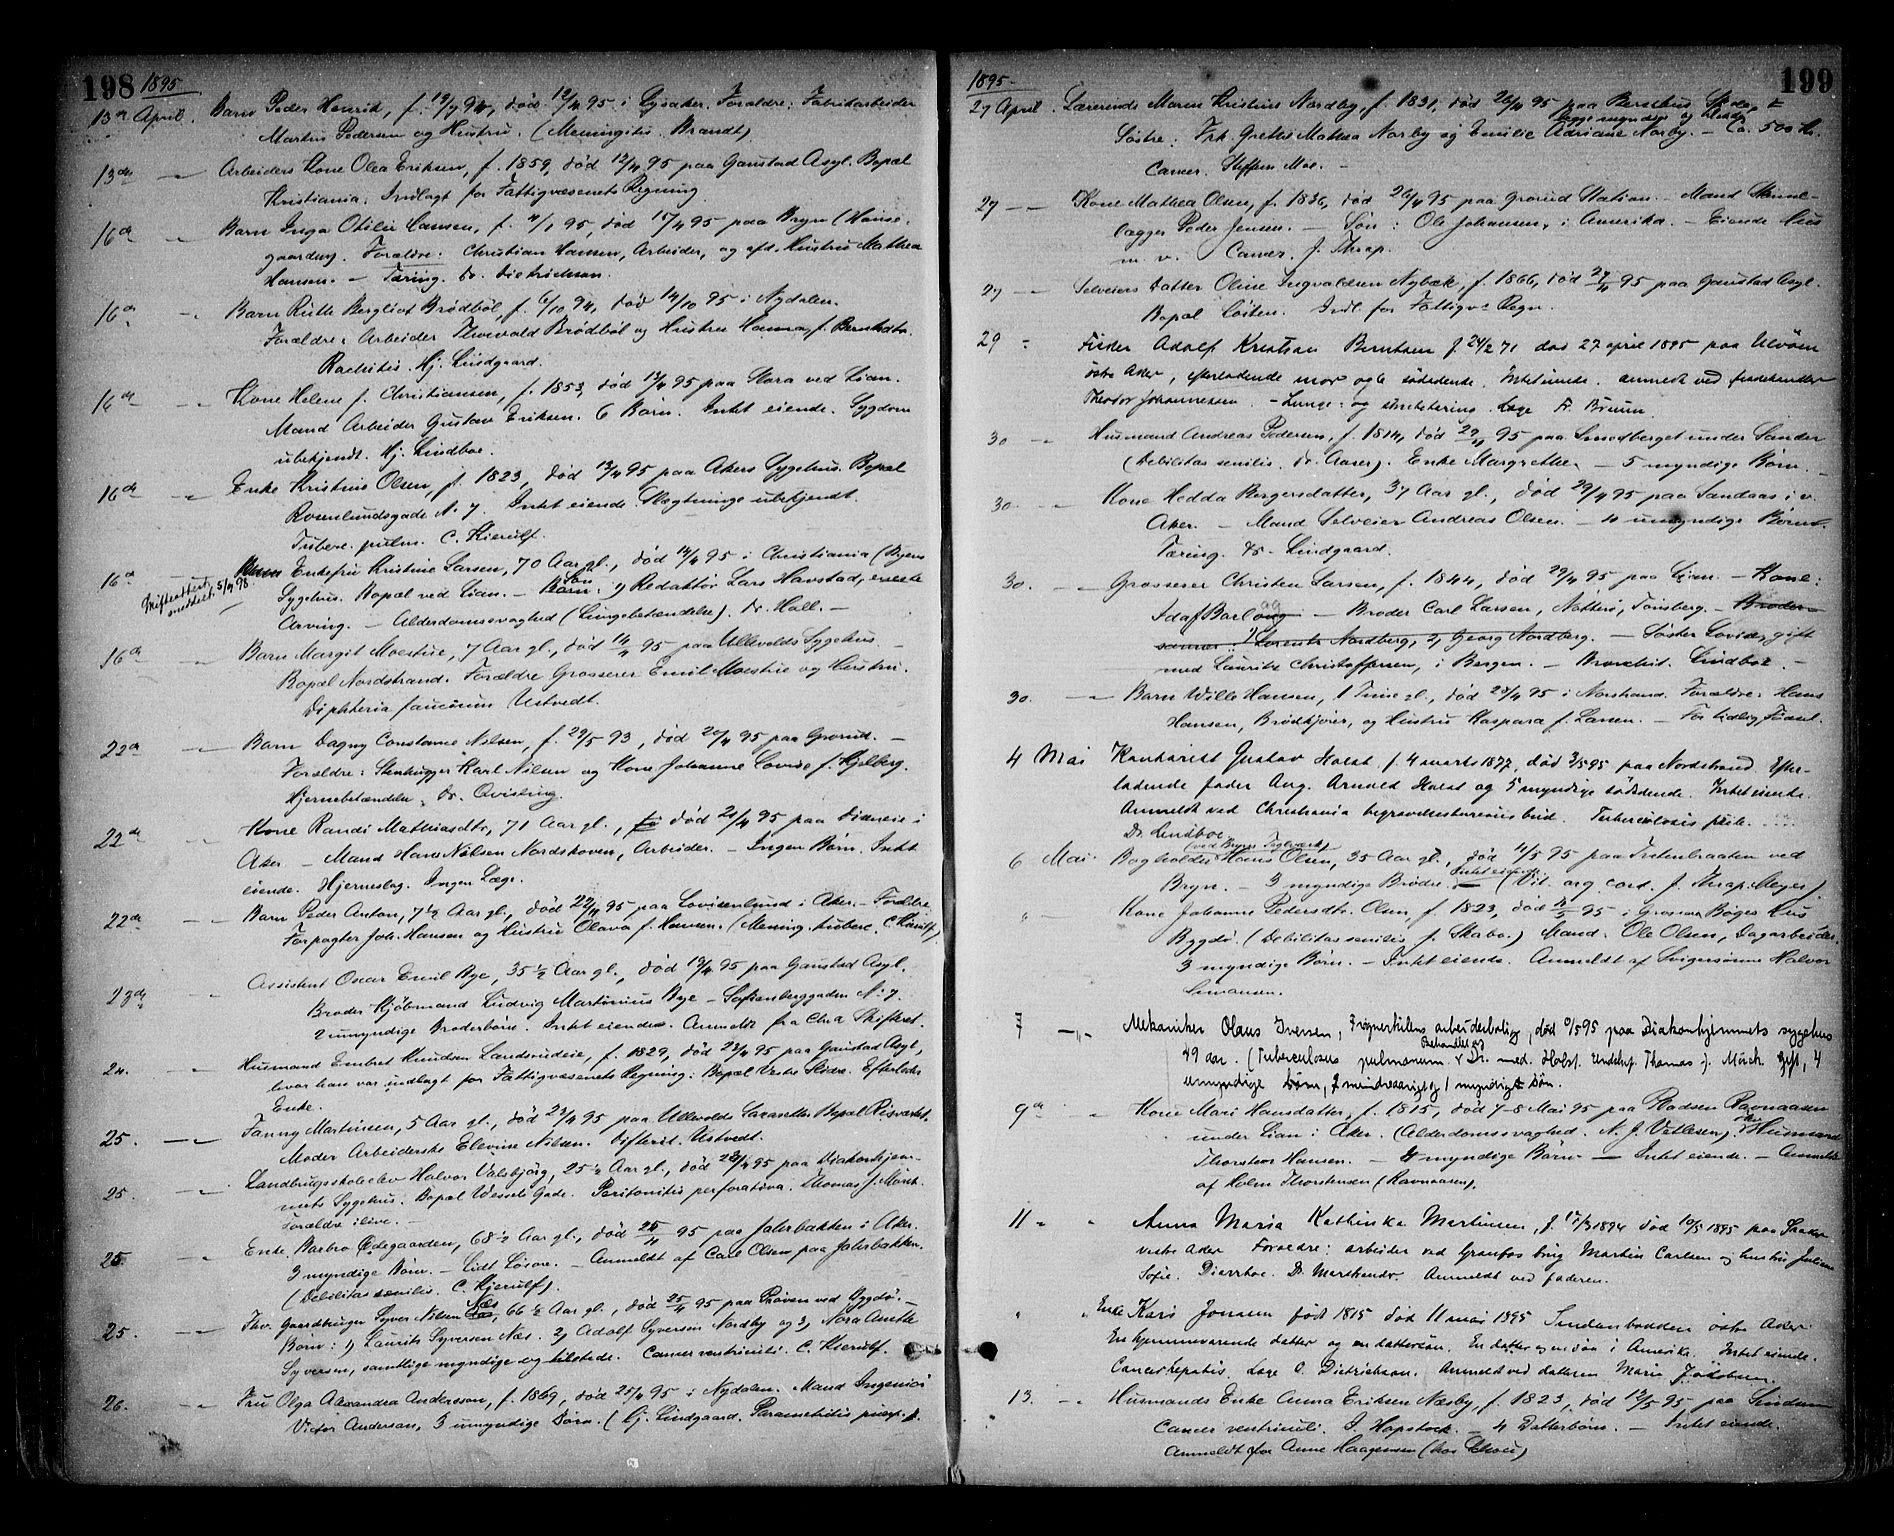 198 1895
13de April. Barn Peder Henrik, f. 19/7 94, død 12/4 95 i Lysaker. Forældre: Fabrikarbeider
Martin Pedersen og Hustru. (Meningitis. Brandt)
13de — Arbeiders Kone Olea Eriksen, f. 1859, død 12/4 95 paa Gaustad Asyl. Bopæl
Kristiania. Indlagt for Fattigvæsenets Regning
16de — Barn Inga Otilie Hansen, f. 4/1 95, død 15/4 95 paa Bryn (Heise-
gaarden). Forældre: Christian Hansen, Arbeider, og afd. Hustru Mathea
Hansen. — Tæring. Dr. Dietrichson.
16de — Barn Ruth Bergliot Brødbøl, f. 6/10 94, død 14/10 95 i Nydalen.
Forældre: Arbeider Thorvald Brødbøl og Hustru Hanna, f. Berntsdtr.
Rachitis. Hj. Lindgaard.
16de — Kone Helene f. Christiansen, f. 1853, død 13/4 95 paa Skora ved Lian.
Mand Arbeider Gustav Eriksen. 6 Børn. Intet eiende. Sygdom
ubekjendt. Hj. Lindboe.
16de — Enke Kristine Olsen, f. 1823, død 13/4 95 paa Akers Sygehus. Bopæl
Rosenlundsgade N. 7. Intet eiende. Slægtninge ubekjendt.
Tuberc. pulm. C. Kierulf.
16de — Enkefru Kristine Larsen, 70 Aar gl., død 14/4 95 i Christiania (Byens
Skifteattest meddelt 5/4 98. Sygehus. Bopæl ved Lian. — Søn: 1) Redaktør Lars Havstad, eneste
Arving. — Alderdomssvaghed (Lungebetændelse). Dr. Hall. —
16de — Barn Margit Moestue, 7 Aar gl., død 14/4 95 paa Ullevolds Sygehus —
Bopæl Nordstrand. Forældre Grosserer Emil Moestue og Hustru.
Diphteria faucium Ustvedt.
22de — Barn Dagny Constance Nilsen, f. 29/5 93, død 20/4 95 paa Grorud. —
Forældre: Stenhugger Karl Nilsen og Kone Johanne Lovise f. Hjelberg.
Hjernebetændelse, Dr. Qvisling.
22de — Kone Randi Mathiasdtr, 71 Aar gl., død 21/4 95 paa i
Aker — Mand Hans Nilsen Nordskoven, Arbeider. — Ingen Børn. Intet
eiende. Hjerneslag. Ingen Læge.
22de — Barn Peder Anton, 7½ Aar gl., død 22/4 95 paa Lovisenlund i Aker. — Forældre
Forpagter Joh. Hansen og Hustru Olava f. Hansen. (Mening. tuberc. C. Kierulf)
23de — Assistent Oscar Emil Bye, 35½ Aar gl., død 13/4 95 paa Gaustad Asyl.
Broder Kjøbmand Ludvig Martinius Bye — Sofienberggaden N. 7.
2 umyndige Broderbørn. Intet eiende. Anmeldt fra Chra Skifteret.
24. — Husmand Embret Knudsen Landsrudeie, f. 1829, død 23/4 95 paa Gaustad Asyl,
hvor han var indlagt for Fattigvæsenets Regning. Bopæl Vestre Slidre. Efterlader
Enke.
25. — Fanny Martinsen, 5 Aar gl., død 23/4 95 paa Ullevolds Lazareth. Bopæl Risværket.
Moder Arbeiderske Elevine Nilsen. Difterit. Ustvedt.
25. — Landbrugsskoleelev Halvor Valebjørg, 25½ Aar gl., død 23/4 95 paa Diakonhjem-
mets Sygehus. Bopæl Wessels Gade. Peritonitis perforativa. Thomas J. Mørch.
Forældre ilive. —
25. — Enke Barbro Ødegaarden, 68½ Aar gl., død 25/4 95 paa Jahrbakken i Aker.
3 myndige Børn. — Lidt Løsøre. — Anmeldt af Carl Olsen paa Jahrbakken.
(Debilitas senilis. C. Kjerulf)
25. — Fhv. Gaardbruger Syver Nilsen Næs, 66½ Aar gl., død 25/4 95 paa Prøven ved Bygdø. —
Børn: 1) Laurits Syversen Næs. 2) Adolf Syversen Nordby og 3) Nora Anette
Syversen, samtlige myndige og tilstede. Cancer ventriculi. C. Kierulf.
26. — Fru Olga Alexandra Andersson, f. 1869, død 25/4 95 i Nydalen. Mand Ingeniør
Victor Andersson, 3 umyndige Børn. (Hj. Lindgaard. Parametritis puerp.)
199
1895
27 April. Lærerinde Maren Kristine Nordby, f. 1831, død 26/4 95 paa Berghus Skole, 2
Søstre: Frk. Grethe Mathea Norby og Emilie Adriane Norby. — Ca. 500 Kr.
begge myndige og tilstede
Cancer. Steffen Moe. —
27 — Kone Mathea Olsen, f. 1836, død 26/4 95 paa Grorud Station. — Mand Skinne-
lægger Peder Jensen. — Søn: Ole Johansen, i Amerika. — Eiende Hus
m. v. Cancer. J. Thrap.
27 — Selveiers Datter Oline Ingvaldsen Nybæk, f. 1866, død 27/4 95 paa Gaustad Asyl.
Bopæl Løiten. Indl. for Fattigv. Regn.
29 — Fisker Adolf Kristian Berntsen f. 24/2 71 død 27 april 1895 paa Ulvøen
østre Aker, efterladende mor og 6 sødskende. Intet eiende. anmeldt ved fiskehandler
Theodor Johannessen. — Lunge- og strubetæring. Læge Fr. Bruun.
30 — Husmand Andreas Pedersen, f. 1814, død 29/4 95 paa Smedberget under Sander
(Debilitas senilis. Dr. Aaser). Enke Margrethe. — 5 myndige Børn. —
30. — Kone Hedda Bergersdatter, 37 Aar gl., død 29/4 95 paa Sandaas i v.
Aker. — Mand Selveier Andreas Olsen. — 4 umyndige Børn.
Tæring. Dr. Lindgaard.
30. — Grosserer Christen Larsen, f. 1844, død 29/4 95 paa Lian. — Kone:
Ida f. Barlaug — Broder Carl Larsen, Nøtterø, Tønsberg. — Broder-
sønner: 1) Lorentz Nordberg, 2) Georg Nordberg. — Søster Lovise, gift
med Lauritz Christoffersen, i Bergen. — Bronchit. Lindboe. —
30. — Barn Wille Hansen, 1 Time gl., død 28/4 95 i Norstrand. Forældre: Hans
Hansen, Brødkjører, og Hustru Kaspara f. Larsen. — For tidlig Fødsel.
4 Mai Kontorist Gustav Holst f. 4 marts 1877, død 3/5 95 paa Nordstrand. Efter-
ladende fader Aug. Arnold Holst og 5 myndige sødskende. Intet eiende.
Anmeldt ved Christiania begravelsesbureaus bud. Tuberculosis pulm.
Dr. Lindboe.
6 Mai. Bogholder (ved Bryns Teglværk) Hans Olsen, 35 Aar gl., død 4/5 95 paa ved
Bryn. — 3 myndige Brødre. Intet eiende — (Vit. org. cord. J. Thrap-Meyer).
" — Kone Johanne Pedersdtr. Olsen, f. 1823, død 4/5 95 i Grosserer Bøges Hus
Bygdø. (Debilitas senilis J. Skabo.) Mand. Ole Olsen, Dagarbeider.
3 myndige Børn. — Intet eiende. Anmeldt af Svigersønnen Halvor
Simonsen.
7 — Mekaniker Olaus Iversen, Frognerkilens arbeiderbolig, død 6/5 95 paa Diakonhjemmets sygehus
49 aar. (Tuberculosis pulmonum. Behandlet af Dr. med. Holst. Undskr. Thomas J. Mørch. Gift, 4
umyndige børn, 2 mindreaarige og 1 myndigt børn.
9de — Kone Mari Hansdatter, f. 1815, død 7-8 Mai 95 paa Pladsen Ravnaasen
under Lian i Aker. (Alderdomssvaghed. N. J. Vetlesen). Husmand
Thorstein Hansen. — 4 myndige Børn — Intet eiende. — Anmeldt
af Holm Thorstensen (Ravnaasen).
11 — Anna Maria Kathinka Martinsen, f. 17/3 1894 død 10/5 1895 paa
vestre Aker Forældre: arbeider ved Granfos brug Martin Carlsen og hustru Juliane
Sofie. Diarrhoe. Dr. Anmeldt ved faderen.
" " Enke Kari Jonsen født 1815 død 11 mai 1895 østre Aker.
En hjemmeværende datter og en dattersøn. En datter og en søn i Amerika. Intet eiende.
Cancer hepatis. Læge O. Dietrichson. Anmeldt ved datteren Marie Jacobsen.
13. — Husmands Enke Anna Eriksen Næsby, f. 1823, død 12/5 95 paa
Cancer ventriculi. J. Hapstock. — 4 Datterbørn. — Intet eiende.
Anmeldt fra Anne Haagensen (hos Schou)